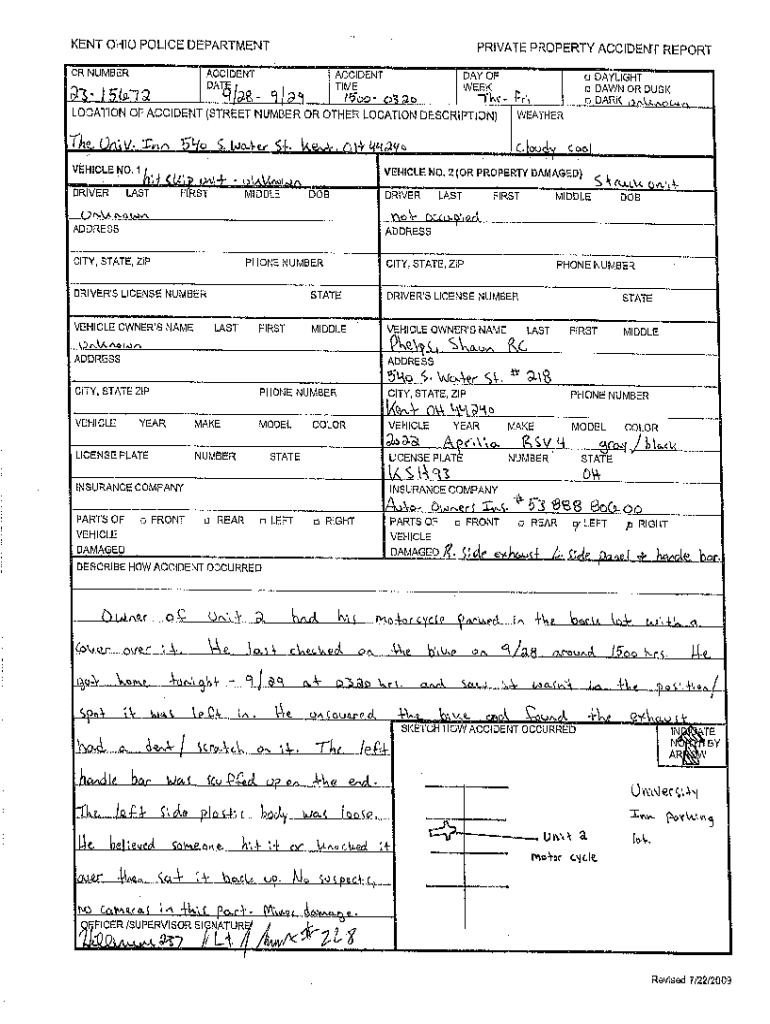 KENT OHIO POLICE DEPARTMENT PRIVATE PROPERTY ACCIDENT REPORT
CR NUMBER ACCIDENT DATE ACCIDENT TIME DAY OF WEEK □ DAYLIGHT
□ DAWN OR DUSK
23-15672 9/28 - 9/29 1500 - 0320 Thr - Fri □ DARK unknown
LOCATION OF ACCIDENT (STREET NUMBER OR OTHER LOCATION DESCRIPTION) WEATHER
The Univ. Inn 540 S. Water St. Kent, OH 44240 cloudy cool
VEHICLE NO. 1 hit skip unit - unknown VEHICLE NO. 2 (OR PROPERTY DAMAGED) Struck unit
DRIVER LAST FIRST MIDDLE DOB DRIVER LAST FIRST MIDDLE DOB
Unknown not occupied
ADDRESS ADDRESS
CITY, STATE, ZIP PHONE NUMBER CITY, STATE, ZIP PHONE NUMBER
DRIVER'S LICENSE NUMBER STATE DRIVER'S LICENSE NUMBER STATE
VEHICLE OWNER'S NAME LAST FIRST MIDDLE VEHICLE OWNER'S NAME LAST FIRST MIDDLE
unknown Phelps, Shaun RC
ADDRESS ADDRESS
540 S. Water St. # 218
CITY, STATE ZIP PHONE NUMBER CITY, STATE, ZIP PHONE NUMBER
Kent OH 44240
VEHICLE YEAR MAKE MODEL COLOR VEHICLE YEAR MAKE MODEL COLOR
2022 Aprilia RSV4 gray/black
LICENSE PLATE NUMBER STATE LICENSE PLATE NUMBER STATE
KSH93 OH
INSURANCE COMPANY INSURANCE COMPANY
Auto Owners Ins. # 53 888 806 00
PARTS OF VEHICLE DAMAGED □ FRONT □ REAR □ LEFT □ RIGHT PARTS OF VEHICLE DAMAGED □ FRONT □ REAR □ LEFT □ RIGHT
R. side exhaust L. side panel + handle bar.
DESCRIBE HOW ACCIDENT OCCURRED
Owner of Unit 2 had his motorcycle parked in the back lot with a
cover over it. He last checked on the bike on 9/28 around 1500 hrs. He
got home tonight - 9/29 at 0320 hrs. and saw it wasn't in the position/
spot it was left in. He uncovered the bike and found the exhaust
had a dent/scratch on it. The left
handle bar was scuffed up on the end.
The left side plastic body was loose.
He believed someone hit it or knocked it
over then sat it back up. No suspects,
no cameras in this part. Minor damage.
SKETCH HOW ACCIDENT OCCURRED INDICATE NORTH BY ARROW
University
Inn Parking
lot.
Unit 2
motor cycle
OFFICER /SUPERVISOR SIGNATURE
237 / Lt. #228
Revised 7/22/2009